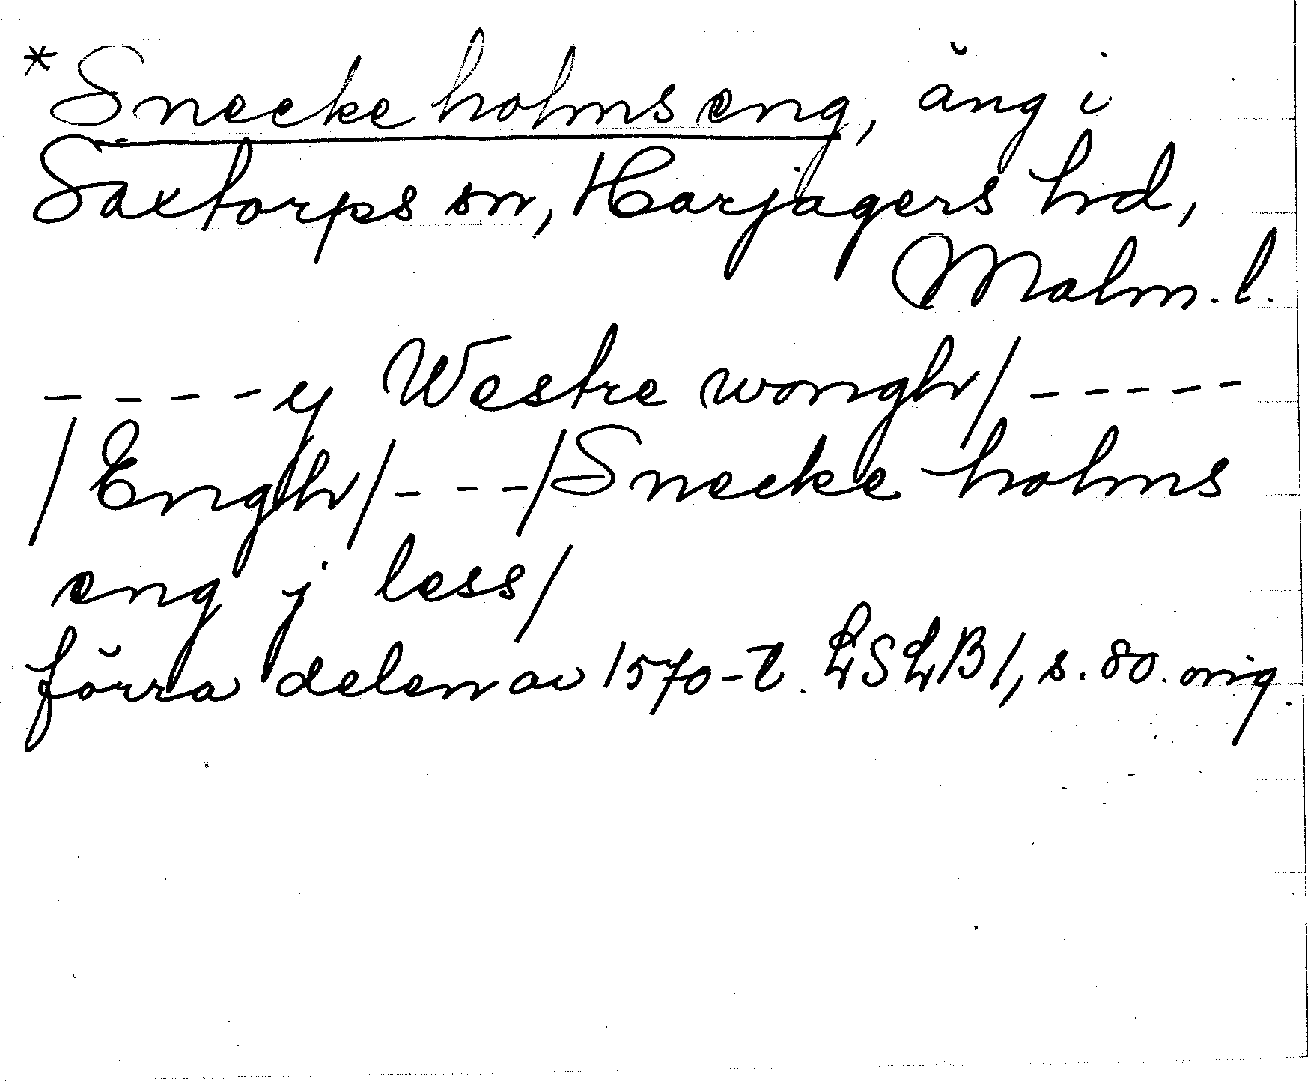 *Snecke holms eng, äng i
Saxtorps sn, Harjagers hd,
Malm. l.
- - - - y Westre wongh/ - - - - -
/Engh/ - - - /Snecke holms
eng j less/
förra delen av 1570-t. LSLB 1, s. 80. orig.